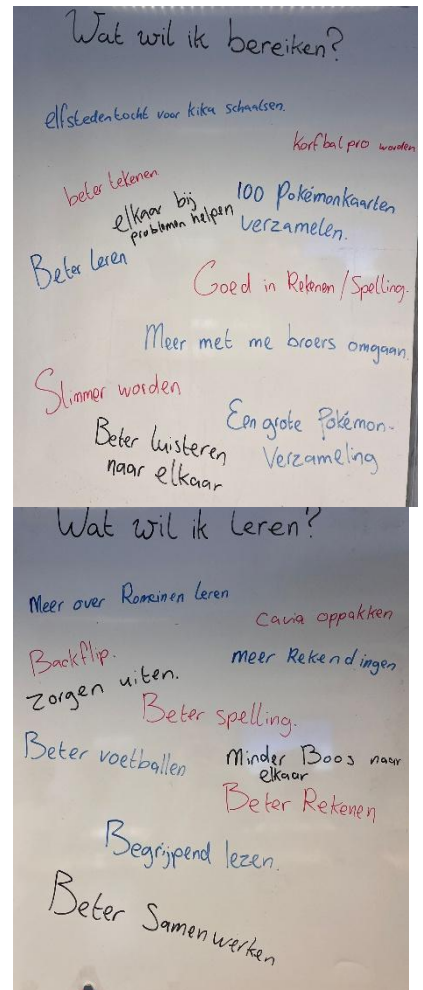 Wat wil ik bereiken?
elfstedentocht voor kika schaatsen.
Korfbal pro worden
beter tekenen
elkaar bij
problemen helpen
100 Pokémonkaarten
verzamelen.
Beter leren
Goed in Rekenen/Spelling.
Meer met me broers omgaan.
Slimmer worden
Beter luisteren
naar elkaar
Een grote Pokémon-
Verzameling
Wat wil ik leren?
Meer over Romeinen leren
Cavia oppakken
Backflip.
meer Rekendingen
Zorgen uiten.
Beter spelling.
Beter voetballen
Minder Boos naar
elkaar
Beter Rekenen
Begrijpend lezen.
Beter Samenwerken